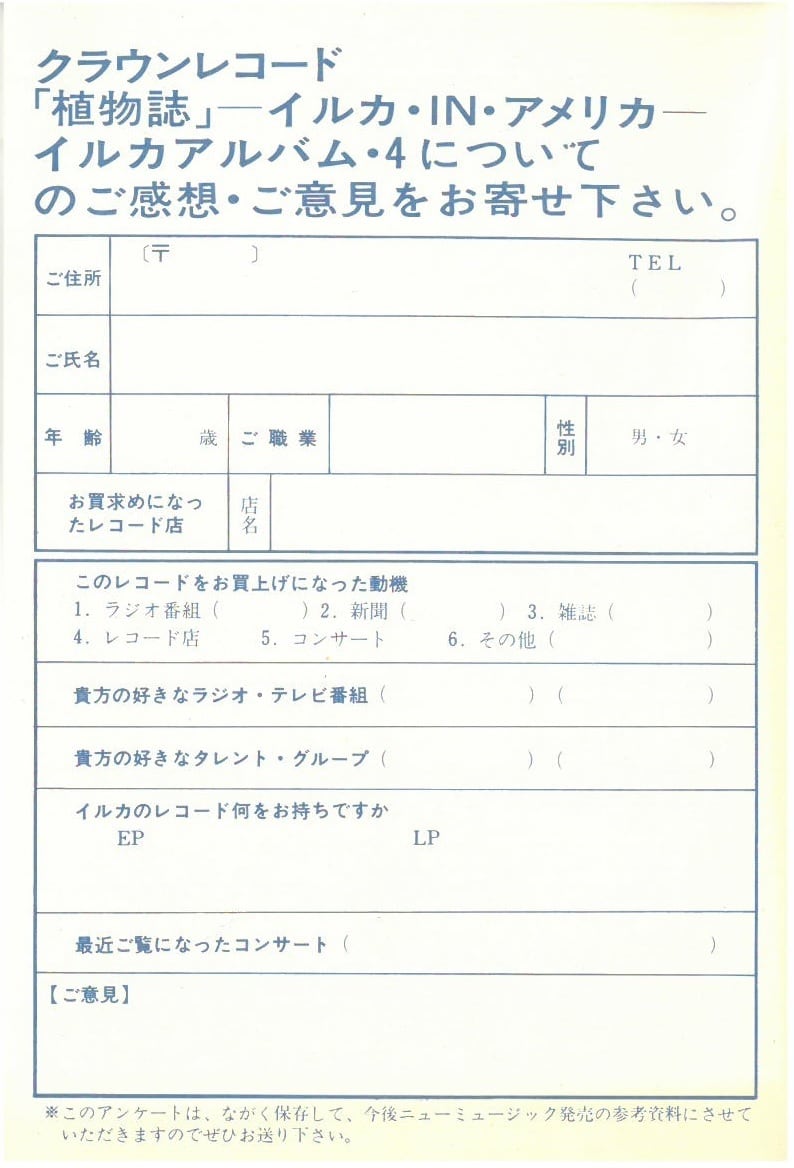 クラウンレコード
「植物誌」―イルカ・IN・アメリカ―
イルカアルバム・4について
のご感想・ご意見をお寄せ下さい。
ご住所 〔〒 〕 TEL ( )
ご氏名
年齢 歳 ご職業 性別 男・女
お買求めになったレコード店 店名
このレコードをお買上げになった動機
1. ラジオ番組( ) 2. 新聞( ) 3. 雑誌( )
4. レコード店 5. コンサート 6. その他( )
貴方の好きなラジオ・テレビ番組( ) ( )
貴方の好きなタレント・グループ( ) ( )
イルカのレコード何をお持ちですか
EP LP
最近ご覧になったコンサート( )
【ご意見】
※このアンケートは、ながく保存して、今後ニューミュージック発売の参考資料にさせて
いただきますのでぜひお送り下さい。